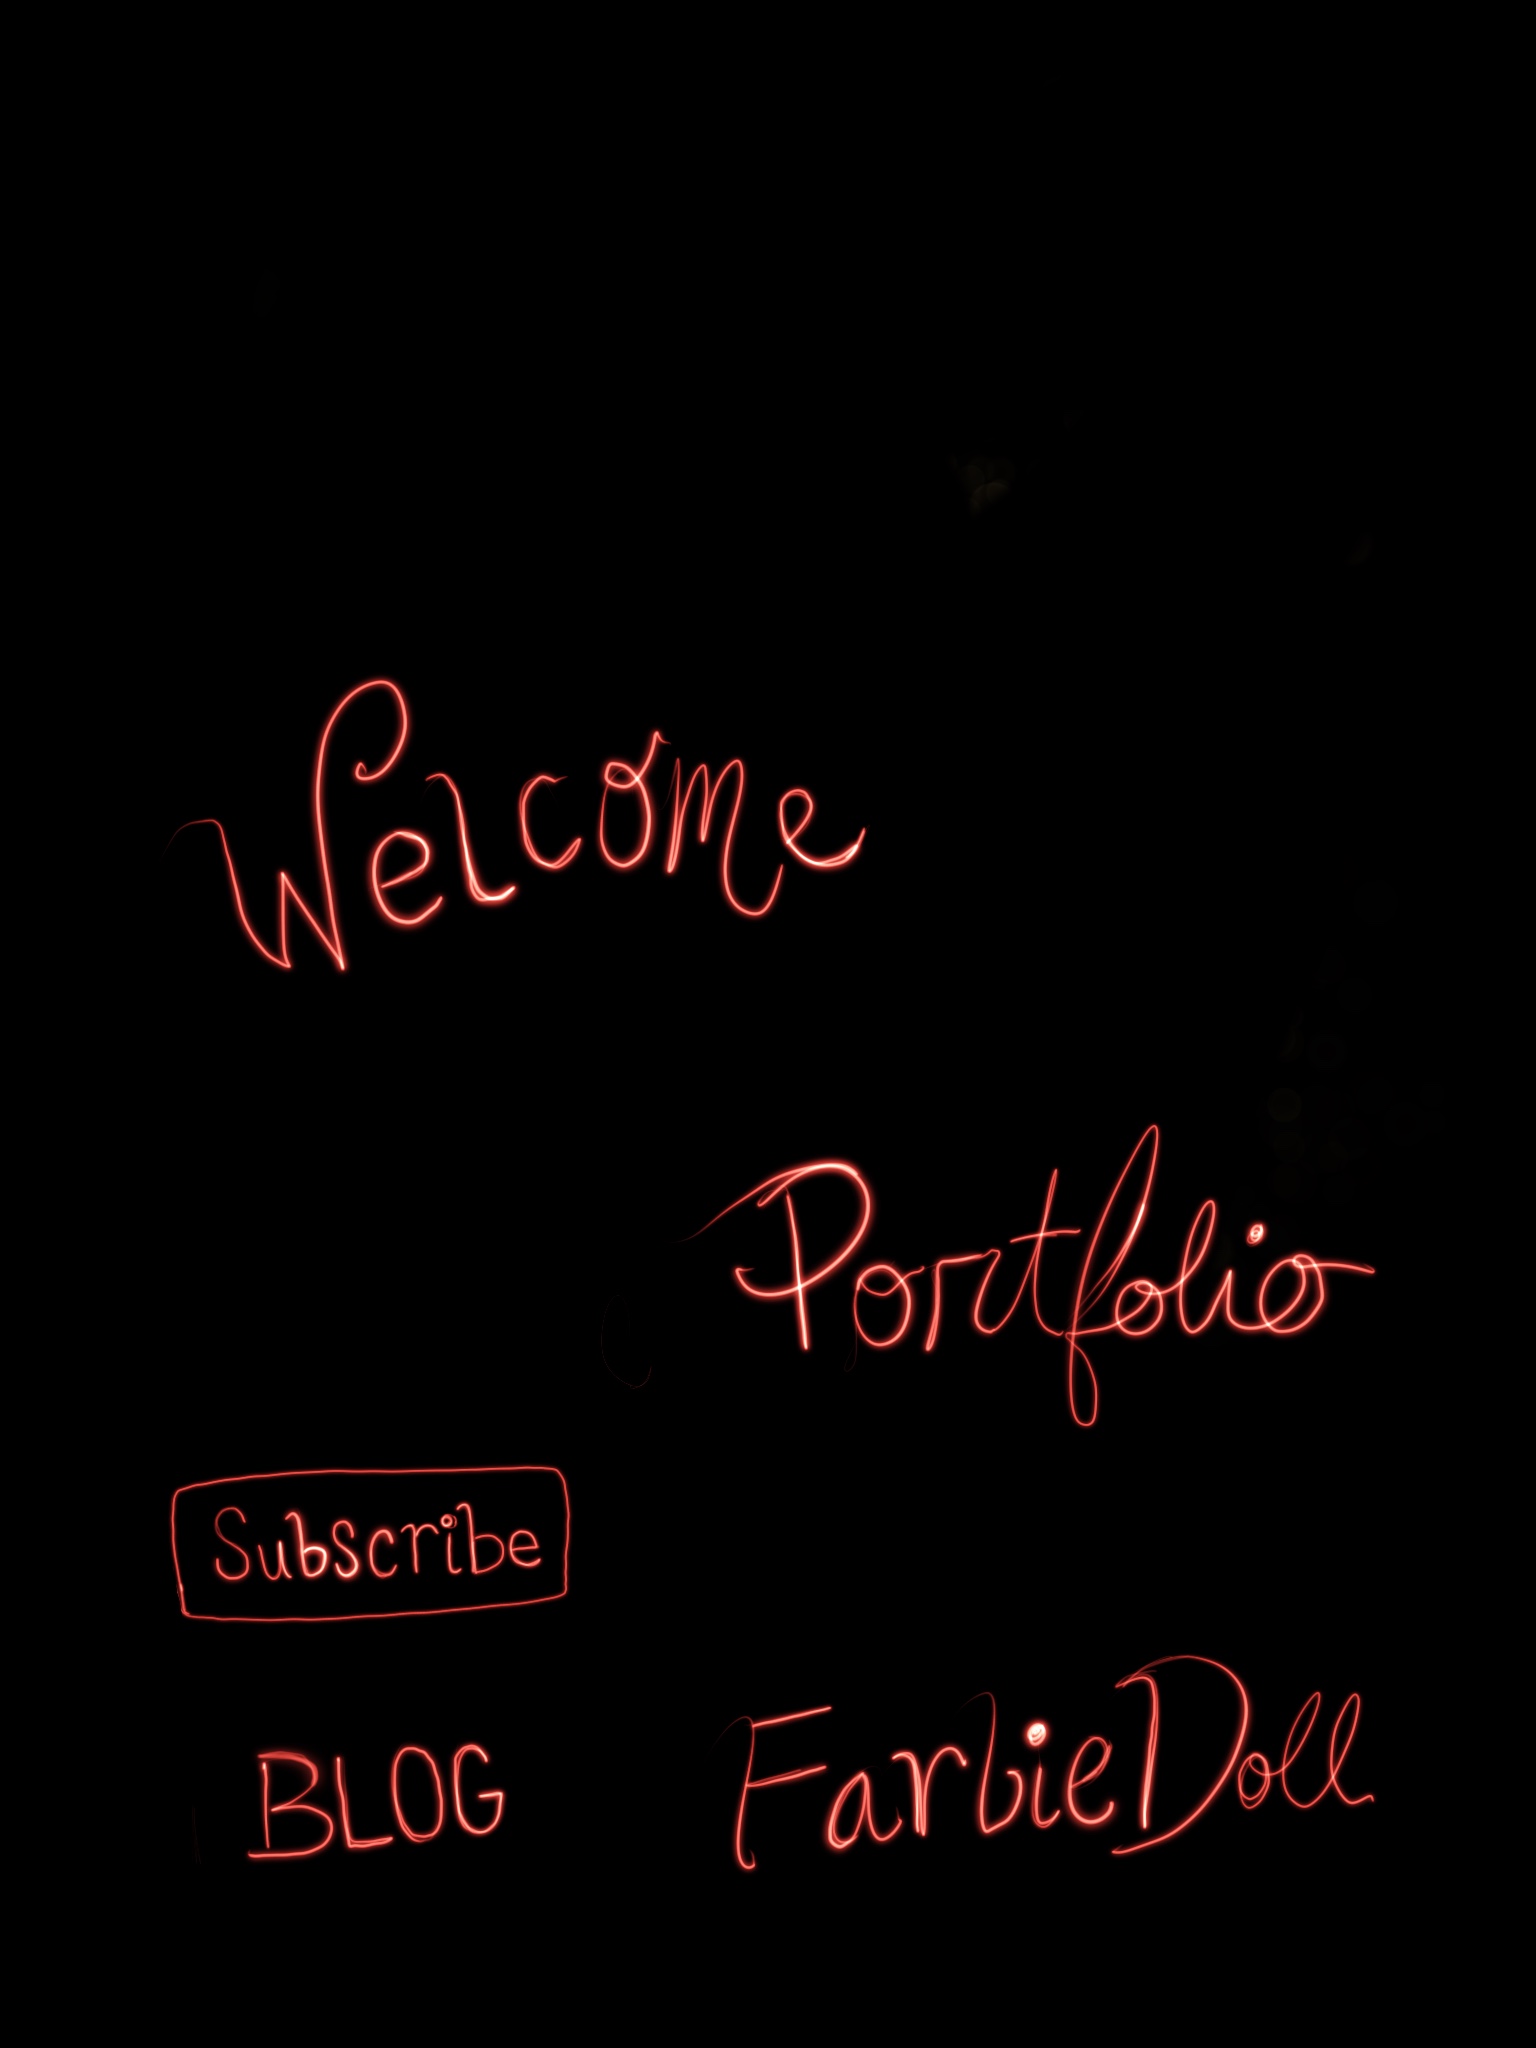 Welcome
Portfolio
Subscribe
BLOG
FarbieDoll